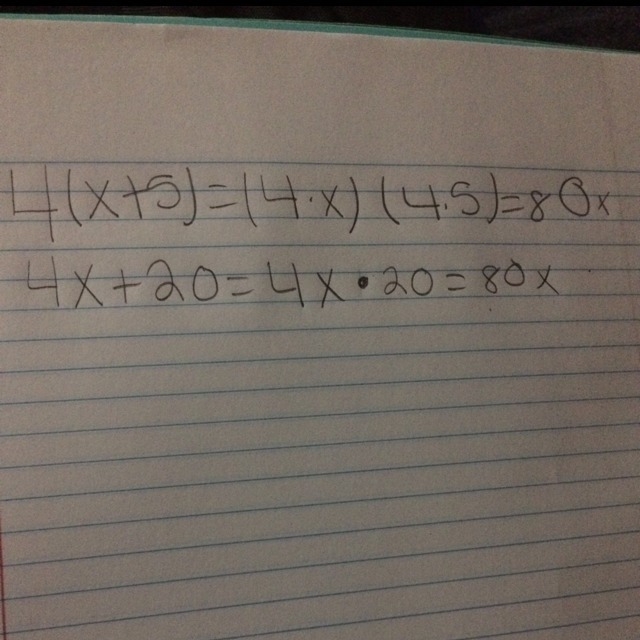 4(x+5)=(4·x)(4·5)=80x
4x+20=4x·20=80x